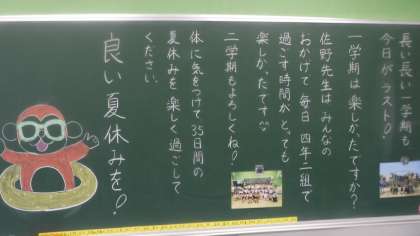 長い長い一学期も
今日がラスト♪
一学期は楽しかったですか?
佐野先生はみんなの
おかげで毎日四年二組で
過ごす時間がとっても
楽しかったです♡
二学期もよろしくね♪
体に気をつけて35日間の
夏休みを楽しく過ごして
ください。
良い夏休みを!